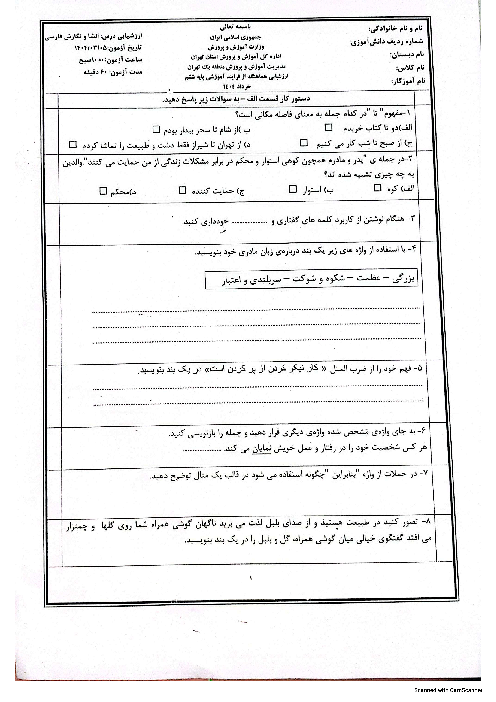 باسمه تعالی
جمهوری اسلامی ایران
وزارت آموزش و پرورش
اداره کل آموزش و پرورش استان تهران
مدیریت آموزش و پرورش منطقه یک تهران
ارزشیابی هماهنگ از فرآیند آموزشی پایه ششم
خرداد ۱۴۰۴
نام و نام خانوادگی:
شماره ردیف دانش آموزی:
نام دبستان:
نام کلاس:
نام آموزگار:
ارزشیابی درس: انشا و نگارش فارسی
تاریخ آزمون: ۱۴۰۴/۰۳/۰۵
ساعت آزمون: ۱۰:۰۰ صبح
مدت آزمون: ۶۰ دقیقه
دستور کار قسمت الف – به سوالات زیر پاسخ دهید.
۱-مفهوم" تا "در کدام جمله به معنای فاصله مکانی است؟
الف)دو تا کتاب خریدم ب )از شام تا سحر بیدار بودم
ج) از صبح تا شب کار می کنیم د) از تهران تا شیراز فقط دشت و طبیعت را تماشا کردم
۲-در جمله ی "پدر و مادرم همچون کوهی استوار و محکم در برابر مشکلات زندگی از من حمایت می کنند".والدین
به چه چیزی تشبیه شده اند؟
الف) کوه ب) استوار ج) حمایت کننده د)محکم
۳- هنگام نوشتن از کاربرد کلمه های گفتاری و .............. خودداری کنید
۴- با استفاده از واژه های زیر یک بند درباره‌ی زبان مادری خود بنویسید.
بزرگی – عظمت – شکوه و شوکت – سربلندی و اعتبار
۵- فهم خود را از ضرب المثل « کار نیکو کردن از پر کردن است» در یک بند بنویسید.
۶- به جای واژه‌ی مشخص شده واژه‌ی دیگری قرار دهید و جمله را بازنویسی کنید.
هر کس شخصیت خود را در رفتار و عمل خویش نمایان می کند. ................
۷- در جملات از واژه "بنابراین "چگونه استفاده می شود در قالب یک مثال توضیح دهید.
۸- تصور کنید در طبیعت هستید و از صدای بلبل لذت می برید ناگهان گوشی همراه شما روی گلها و چمنزار
می افتد گفتگوی خیالی میان گوشی همراه، گل و بلبل را در یک بند بنویسید.
۱
Scanned with CamScanner